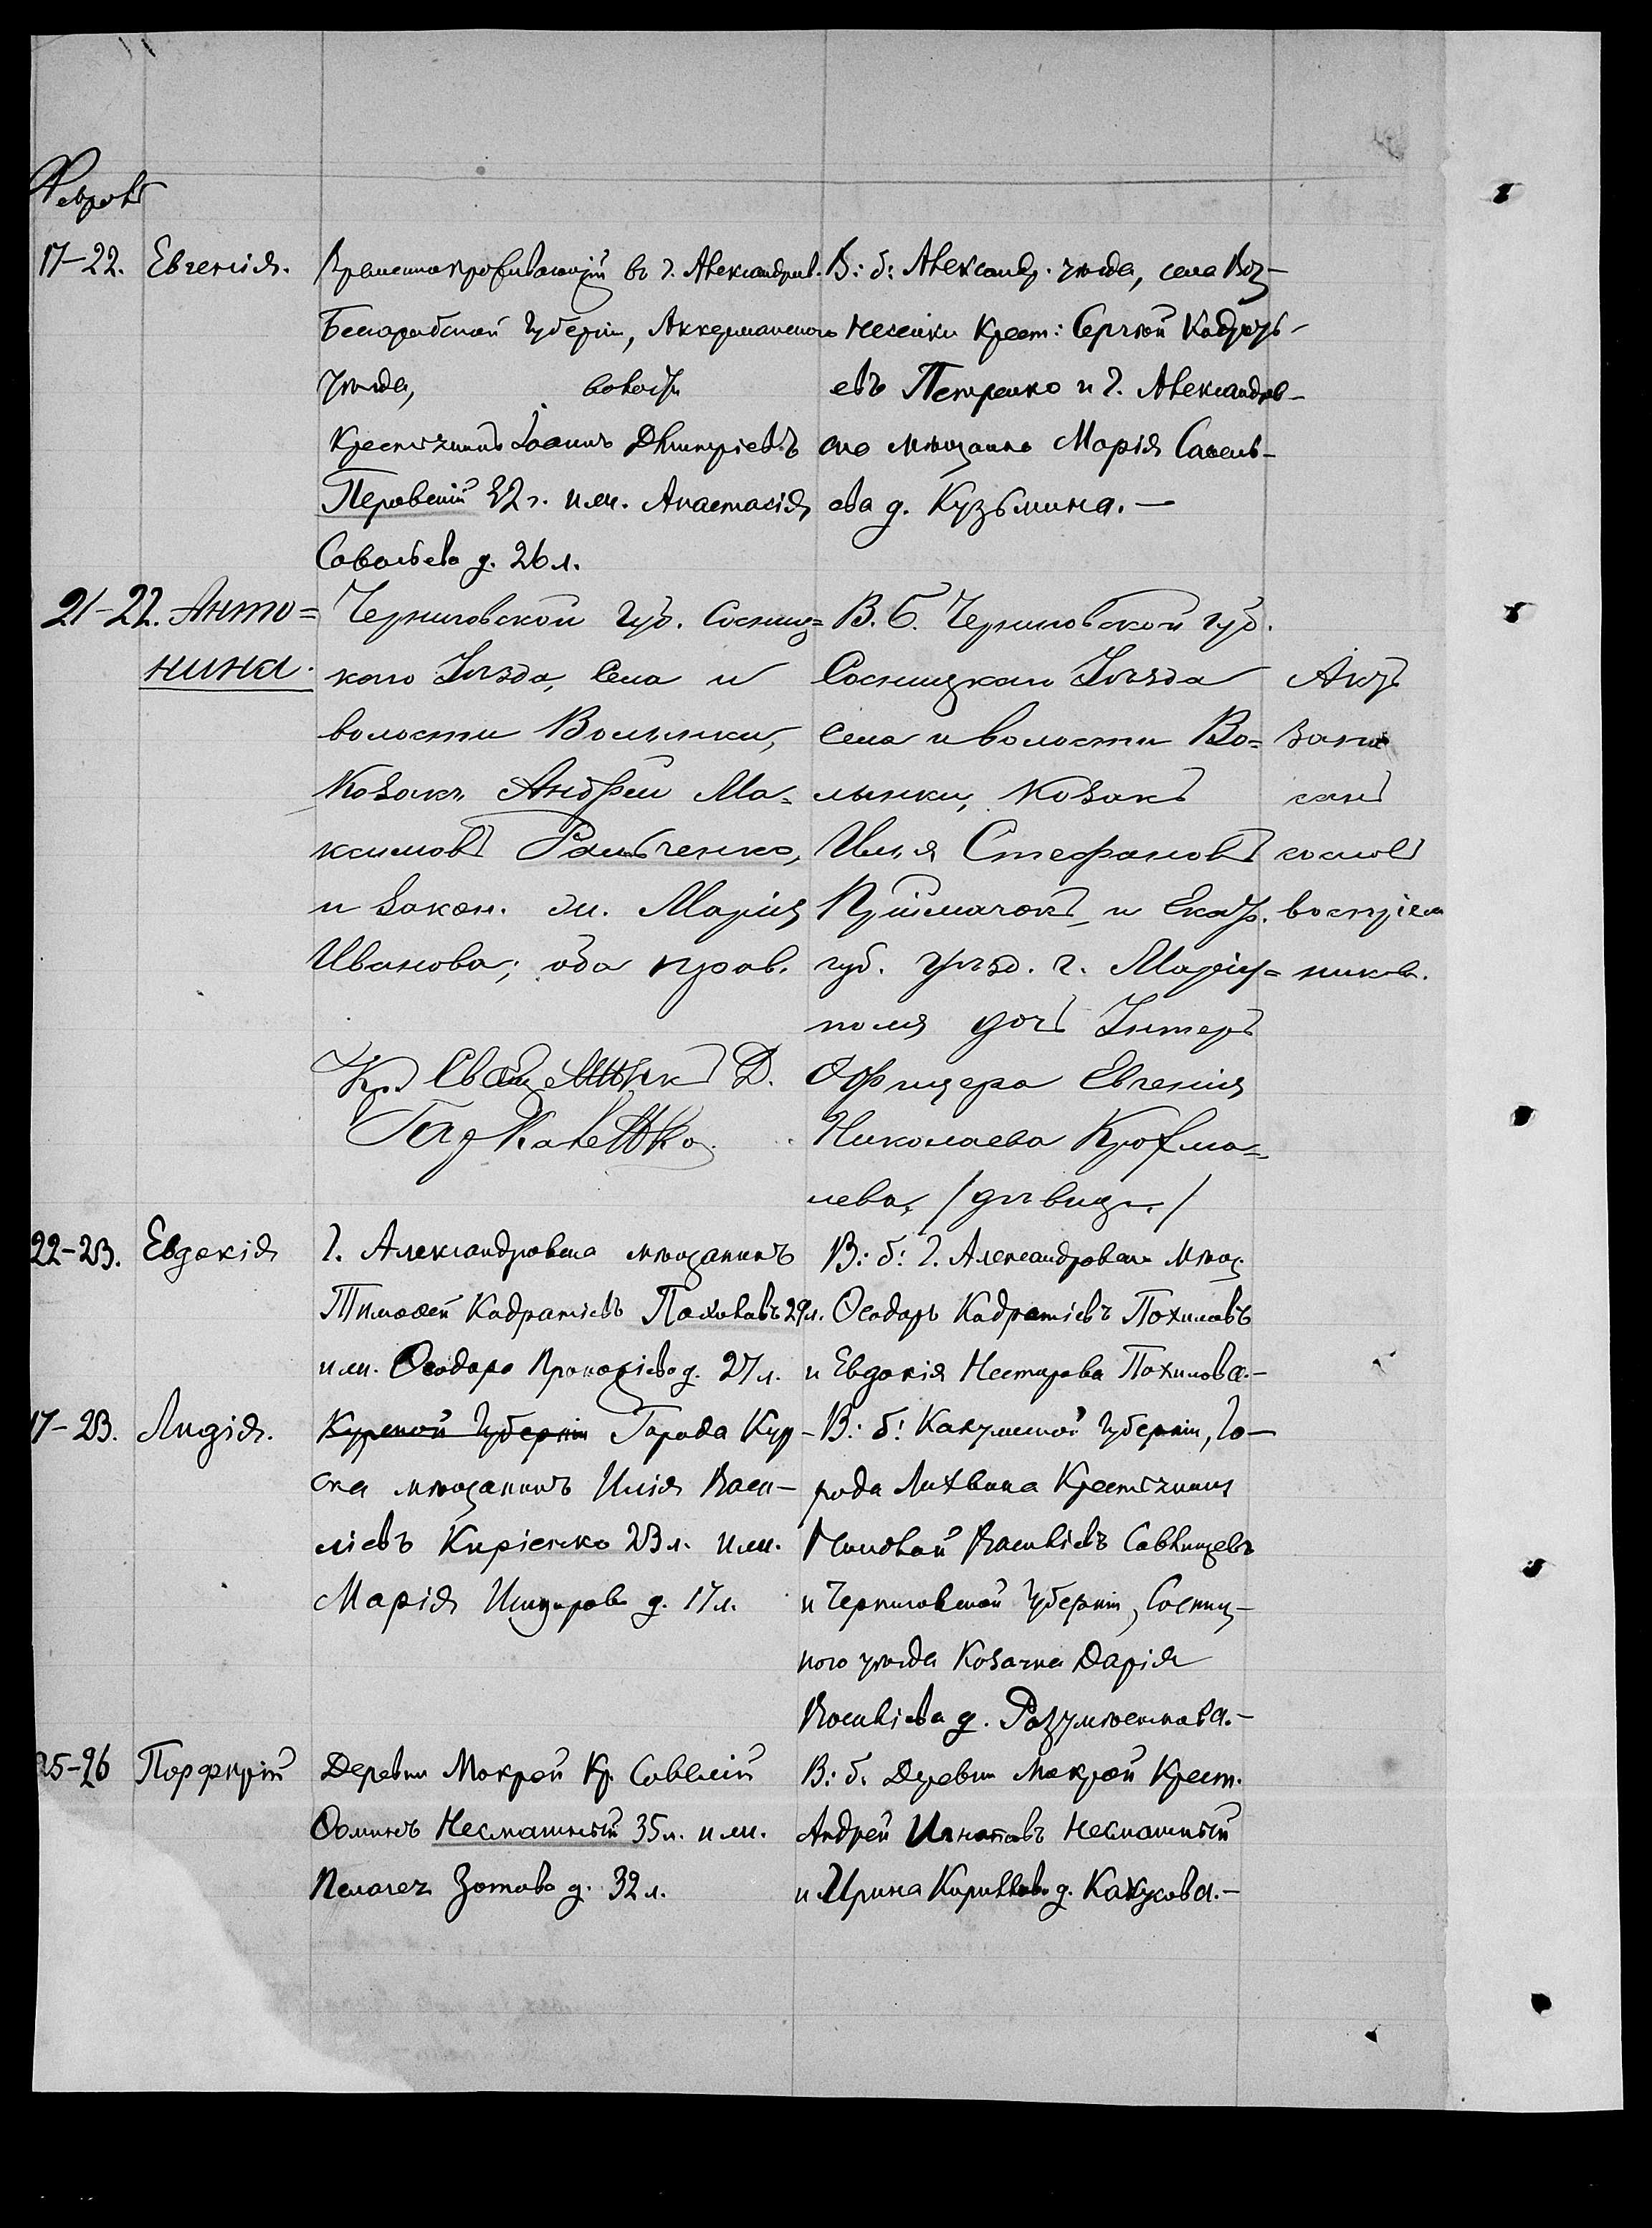 Февраль
17-22. Евгенія.
Временнопроживающій въ г. Александров.
Бессарабской губерніи, Аккерманскаго
уѣзда, волости
Крестьянинъ Іоаннъ Дмитріевъ
Перовскій 32 г. и ж. Анастасія
Савельева д. 26 л.
В: б: Александ. уѣзда, села Воз-
несенки Крест: Сергѣй
евъ Петренко и г. Александров-
ска мѣщанка Марія Савель-
ева д. Кузьмина.-
21-22. Анто=
нина.
Черниговской губ. Сосниц=
каго Уѣзда, села и
волости Волынки,
Козакъ Андрей Ма=
ксимовъ Рамченко,
и закон. ж. Марія
Иванова; оба прав.
Кр. Священникъ Д.
В. б. Черниговской губ.
Сосницкаго Уѣзда
села и волости Во=
лынки, Козакъ
Илья Стефановъ
Пріймачокъ, и Екатр.
губ. уѣзд. г. Маріу=
поля дочь Унтеръ
Офицера Евгенія
Николаева Крохма=
лева, /дѣвица./
Актъ
запи
санъ
со словъ
воспріем
никовъ.
22-23. Евдокія
г. Александровска мѣщанинъ
Тимофей Кадратіевъ Похиловъ 29 л.
и ж. Ѳеодора Прокофіева д. 27 л.
В: б: г. Александровска Мѣщ.
Ѳеодоръ Кадратіевъ Похиловъ
и Евдокія Нестерова Похилова.-
17-23. Лидія.
Курской губерніи Города Кур-
ска мѣщанинъ Илія Васи-
ліевъ Киріенко 23 л. и ж.
Марія Исидорова д. 17 л.
В: б: Калужской губерніи, Го-
рода Лихвина Крестьянинъ
Николай Василіевъ
и Черниговской губерніи, Сосниц-
каго уѣзда Козачка Дарія
Василіева д.
25-26 Порфирій
Деревни Мокрой Кр. Савелій
Ѳоминъ Несмашный 35 л. и ж.
Пелагея Зотова д. 32 л.
В: б: Деревни Мокрой Крест.
Андрей Игнатовъ Несмашный
и Ирина Кириллова д.